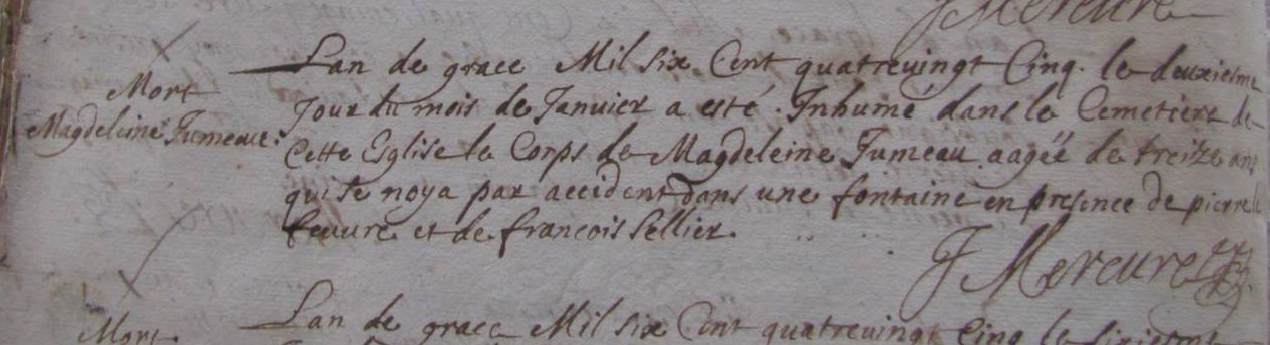 J Mercure
Lan de grace Mil six Cent quatrevingt Cinq. le deuxiesme
Mort
Jour du mois de Janvier a esté Inhumé dans le Cemetiere de
Magdeleine Jumeau.
Cette Esglise le Corps de Magdeleine Jumeau aageé de treize ans
qui se noya par accident dans une fontaine en presence de pierre le
feuure et de francois Sellier.
J Mercure
Lan de grace Mil six Cent quatrevingt Cinq le sixiesme
Mort.